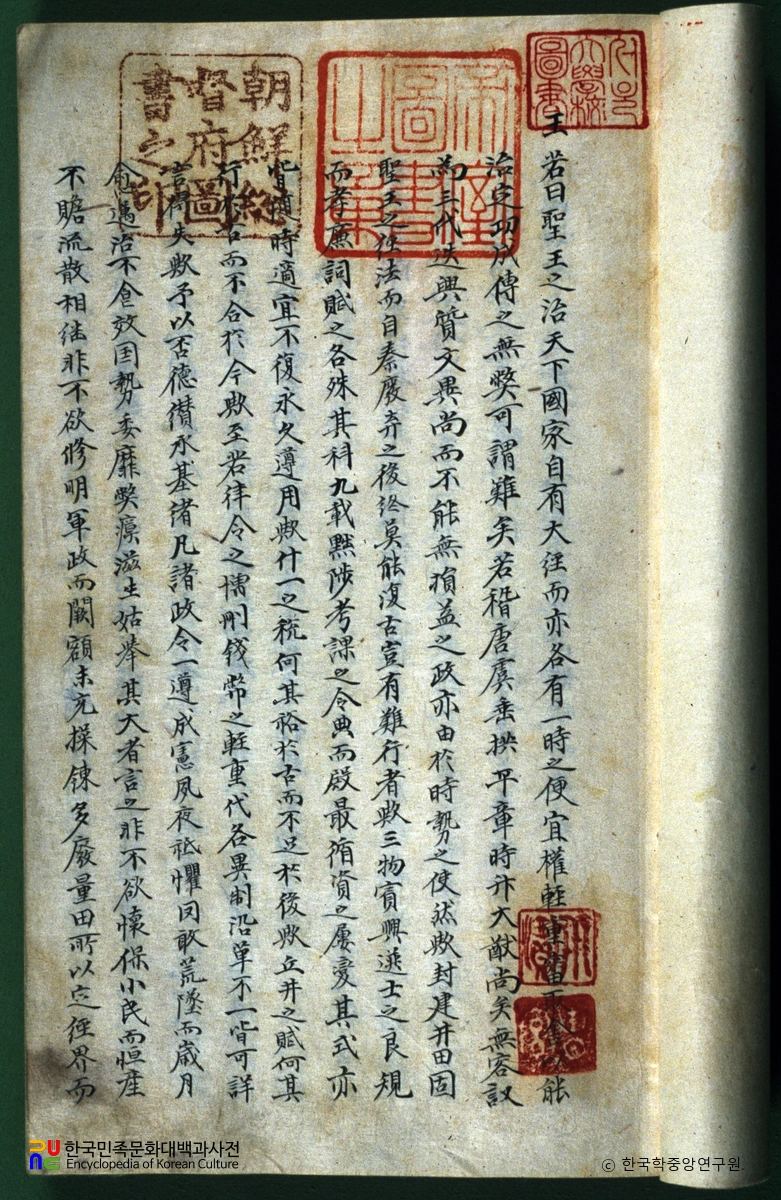 王
若曰聖王之治天下國家自有大経而亦各有一時之便宜權輕重能
治定功成傳之無獘可謂難矣若稽唐虞垂拱平章時大猷尚矣無容議
而三代迭興質文異尚而不能無損益之政亦由於時勢之使然歟封建井田固
聖王之経法而自秦廢弃之後終莫能復古豈有難行者歟三物賓興選士之良規
而孝廉詞賦之各殊其科九載黜陟考課之令典而殿最循資之屢變其式亦
皆隨時適宜不復永久遵用歟什一之稅何其裕於古而不足於後歟丘井之賦何其
行於古而不合於今歟至若律令之增刪錢幣之輕重代各異制沿革不一皆可詳
言得失歟予以否德纘承基緖凡諸政令一遵成憲夙夜祗懼罔敢荒墜而歲月
愈邁治不効国勢委靡獘瘼滋生姑擧其大者言之非不欲懷保小民而恒産
不贍流散相継非不欲修明軍政而闕額未充操鍊多廢量田所以定経界而
帝室圖書之章
朝鮮総督府圖書之印
한국민족문화대백과사전
Encyclopedia of Korean Culture
ⓒ 한국학중앙연구원.